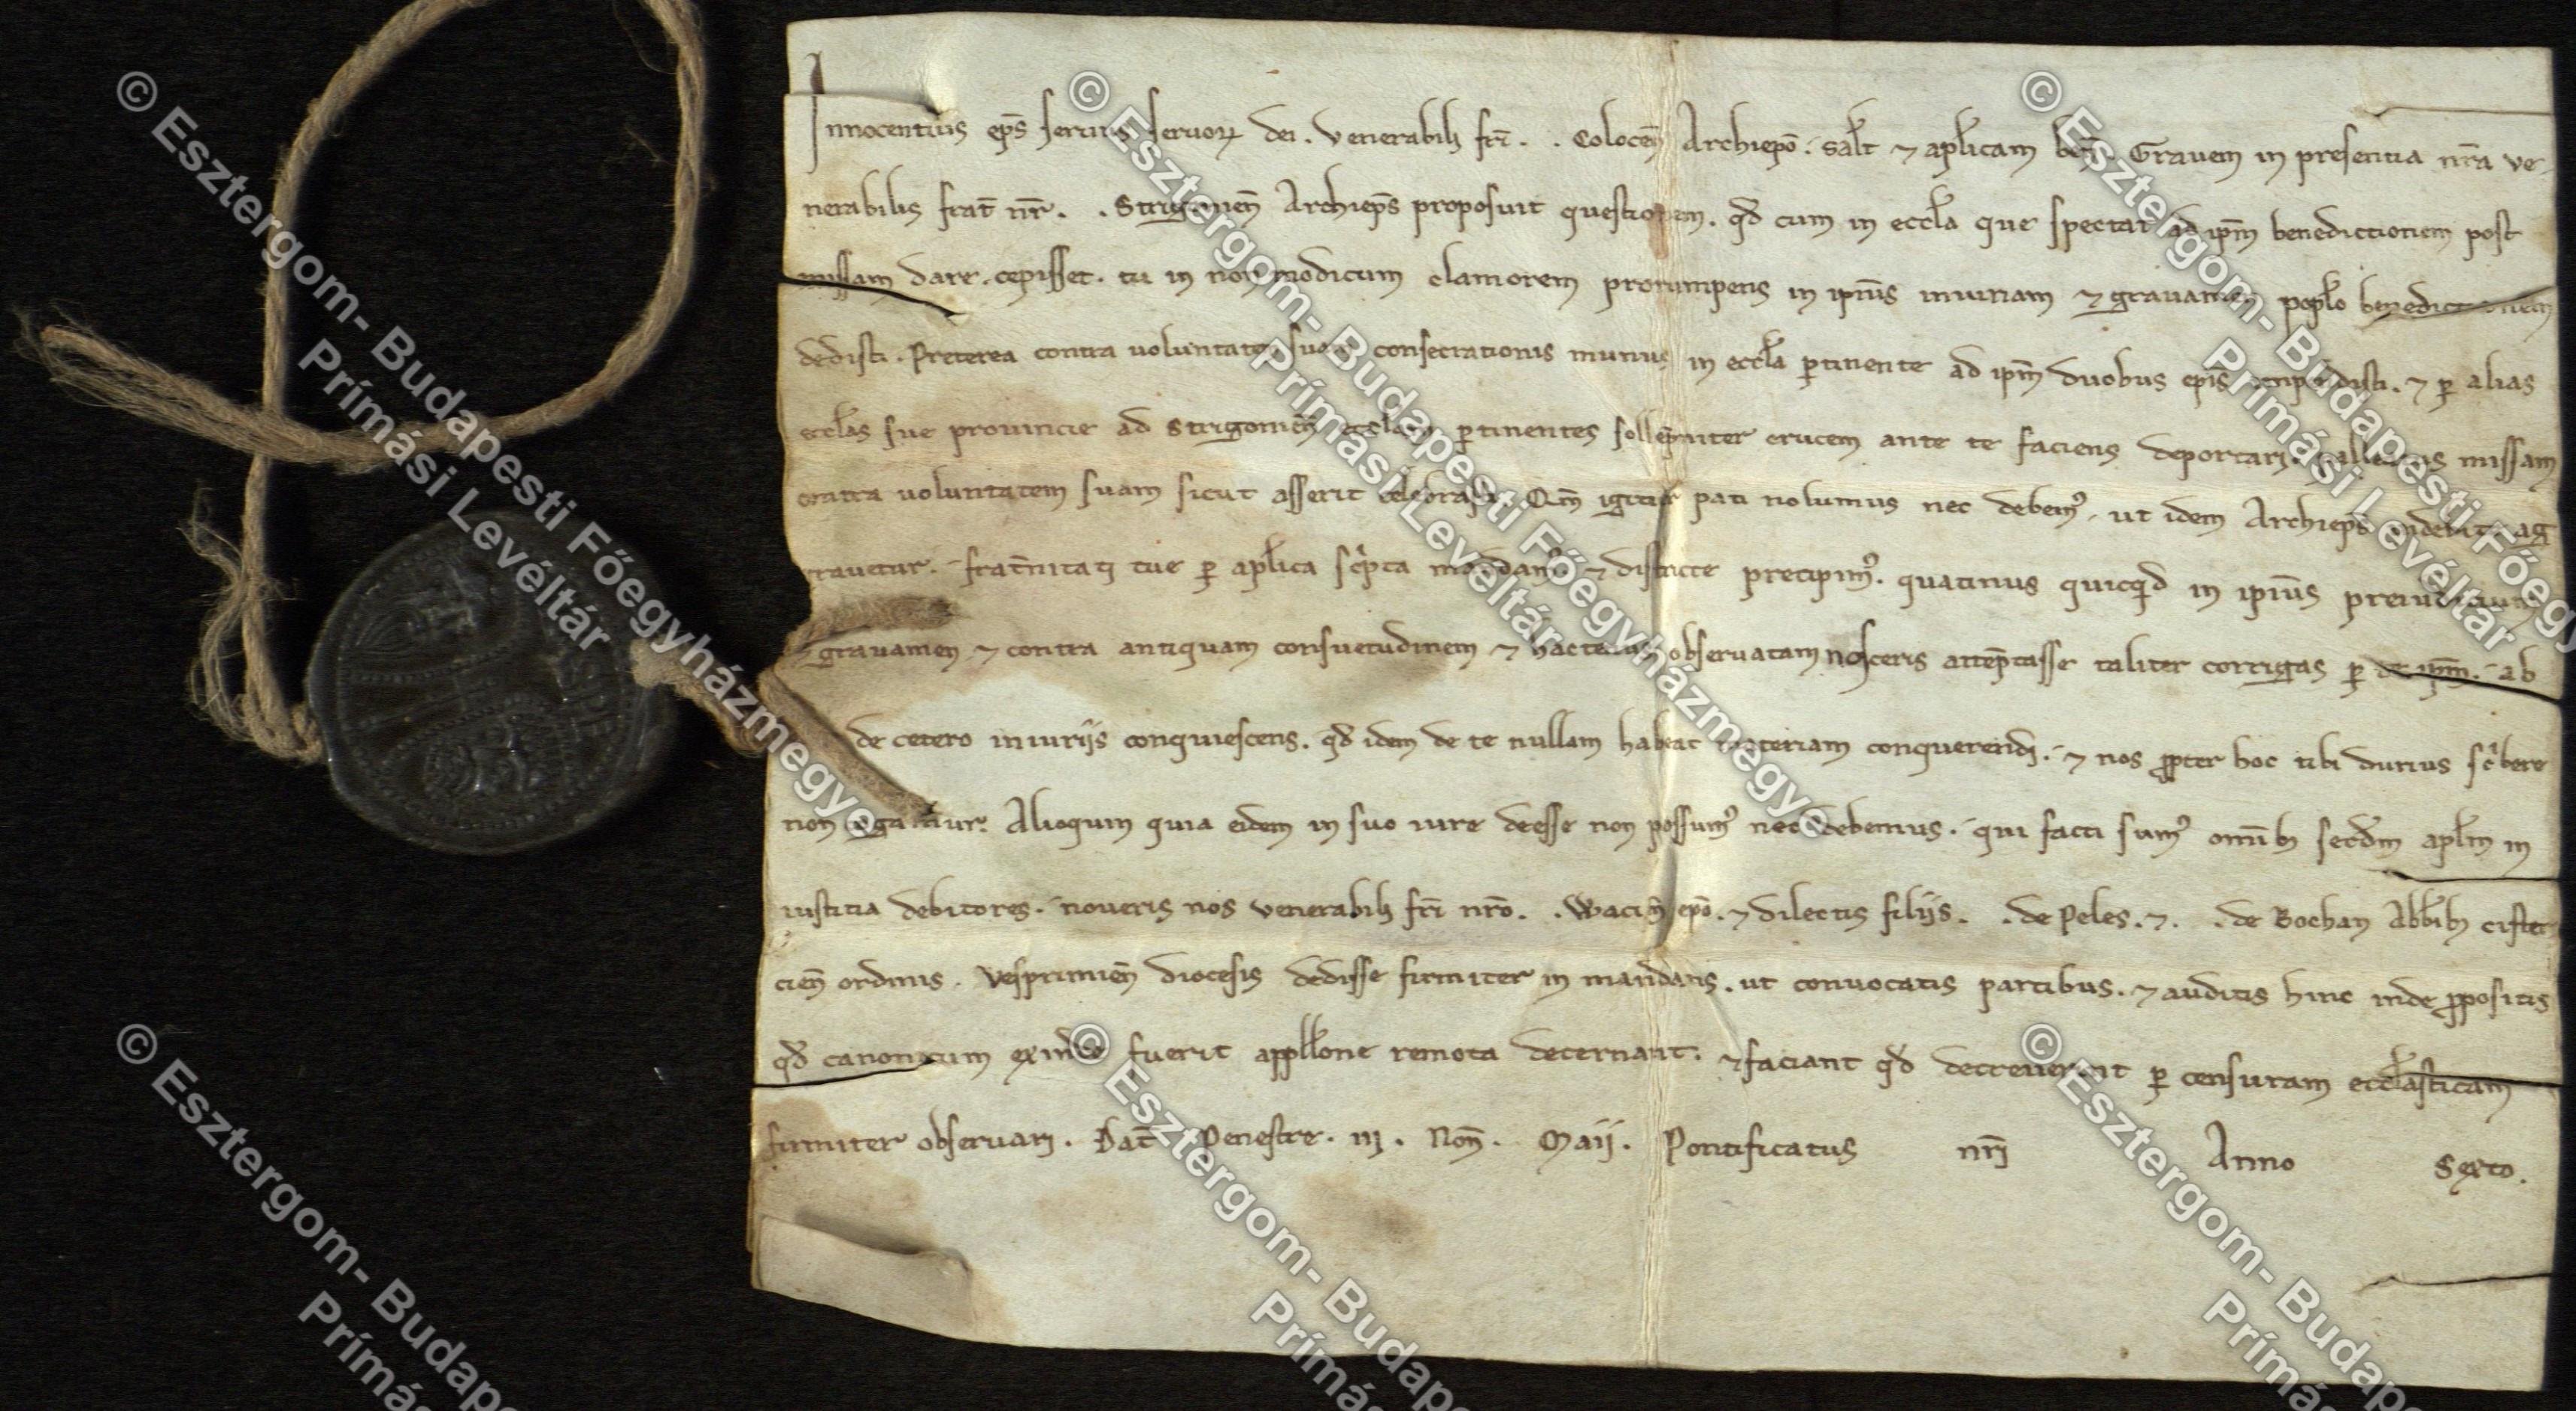 Innocentius ep̄s seruus seruoꝝ dei. Venerabili fr̄i. . Colocen̄ Archiep̄o. salt̄ ⁊ apl̄icam ben̄. Grauem in presentia nr̄a ve-
nerabilis frat̄ nr̄. . Strigonien̄ Archiep̄s proposuit questionem. qd̄ cum in eccl̄a que spectat ad ip̄m benedictionem post
missam dare cepisset. tu in non modicum clamorem prorumpens in ipiūs iniuriam ⁊ grauamen popl̄o benedictionem
dedisti. Preterea contra uoluntatem suam consecrationis munus in eccl̄a ꝑtinente ad ip̄m duobus ep̄is impendisti. ⁊ ꝑ alias
eccl̄as sue prouincie ad Strigonien̄ eccl̄am ꝑtinentes sollempniter crucem ante te faciens deportari missam
contra uoluntatem suam sicut asserit celebrasti. Qm̄ igitur pati nolumus nec debemꝰ. ut idem Archiep̄s indebite ag
grauetur. frat̄nitati tue ꝑ apl̄ica sc̄pta mandamꝰ ⁊ districte precipimꝰ. quatinus quicq̄d in ipiūs preiudicium
grauamen ⁊ contra antiquam consuetudinem ⁊ hactenus obseruatam nosceris attēptasse taliter corrigas ꝑ te ip̄m. ab
de cetero iniuriis conquiescens. qd̄ idem de te nullam habeat materiam conquerendi. ⁊ nos ꝓpter hoc tibi durius sc̄bere
non cogamur. Alioquin quia eidem in suo iure deesse non possumꝰ nec debemus. qui facti sumꝰ omīb; secd̄m apl̄m in
iustitia debitores. noueris nos venerabili fr̄i nr̄o. . Wacien̄ ep̄o. ⁊ dilectis filiis. . de Peles. ⁊. . de Bochan Abb̄ib; cister
cien̄ ordinis. Vesprimien̄ diocesis dedisse firmiter in mandatis. ut conuocatis partibus. ⁊ auditis hinc inde ꝓpositis
qd̄ canonicum fuerit appll̄one remota decernant. ⁊ faciant qd̄ decreuerint ꝑ censuram eccl̄asticam
firmiter obseruari. Dat̄ Penestre. iij. Non̄. Maii. Pontificatus nr̄i Anno Sexto.
© Esztergom- Budapesti Főegyházmegye
Prímási Levéltár
© Esztergom- Budapesti Főegyházmegye
Prímási Levéltár
© Esztergom- Budapesti Főegy
Prímási Levéltár
© Esztergom- Budape
Prímás
© Esztergom- Budape
Prímás
© Esztergom- Budape
Prímás